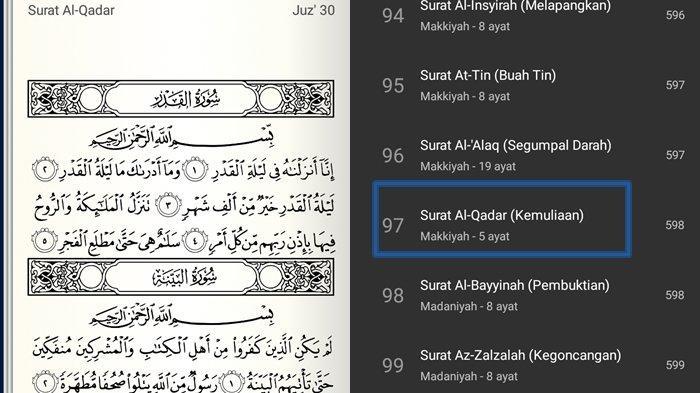 Surat Al-Qadar
Juz' 30
سُورَةُ القَدْرِ
بِسْمِ اللَّهِ الرَّحْمَٰنِ الرَّحِيمِ
إِنَّا أَنزَلْنَاهُ فِي لَيْلَةِ الْقَدْرِ ۝١ وَمَا أَدْرَاكَ مَا لَيْلَةُ الْقَدْرِ ۝٢
لَيْلَةُ الْقَدْرِ خَيْرٌ مِّنْ أَلْفِ شَهْرٍ ۝٣ تَنَزَّلُ الْمَلَائِكَةُ وَالرُّوحُ
فِيهَا بِإِذْنِ رَبِّهِم مِّن كُلِّ أَمْرٍ ۝٤ سَلَامٌ هِيَ حَتَّىٰ مَطْلَعِ الْفَجْرِ ۝٥
سُورَةُ البَيِّنَةِ
بِسْمِ اللَّهِ الرَّحْمَٰنِ الرَّحِيمِ
لَمْ يَكُنِ الَّذِينَ كَفَرُوا مِنْ أَهْلِ الْكِتَابِ وَالْمُشْرِكِينَ مُنفَكِّينَ
حَتَّىٰ تَأْتِيَهُمُ الْبَيِّنَةُ ۝١ رَسُولٌ مِّنَ اللَّهِ يَتْلُو صُحُفًا مُّطَهَّرَةً ۝٢
94 Surat Al-Insyirah (Melapangkan) 596
Makkiyah - 8 ayat
95 Surat At-Tin (Buah Tin) 597
Makkiyah - 8 ayat
96 Surat Al-'Alaq (Segumpal Darah) 597
Makkiyah - 19 ayat
97 Surat Al-Qadar (Kemuliaan) 598
Makkiyah - 5 ayat
98 Surat Al-Bayyinah (Pembuktian) 598
Madaniyah - 8 ayat
99 Surat Az-Zalzalah (Kegoncangan) 599
Madaniyah - 8 ayat